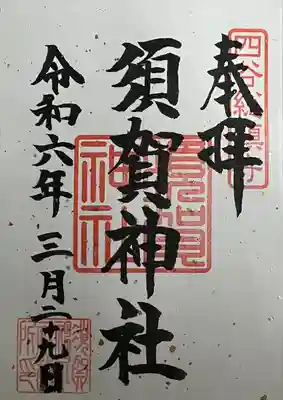 四谷総鎮守
奉拝
須賀神社
須賀神社
令和六年三月二十九日